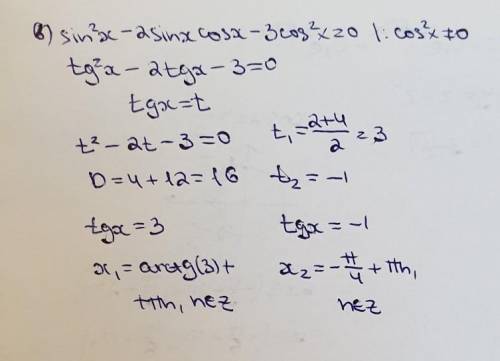 б) sin²x - 2sinx cosx - 3cos²x = 0 |: cos²x ≠ 0
tg²x - 2tgx - 3 = 0
tgx = t
t² - 2t - 3 = 0
t₁ = (2+4)/2 = 3
D = 4 + 12 = 16
t₂ = -1
tgx = 3
tgx = -1
x₁ = arctg(3) +
πn, n∈Z
x₂ = -π/4 + πn,
n∈Z